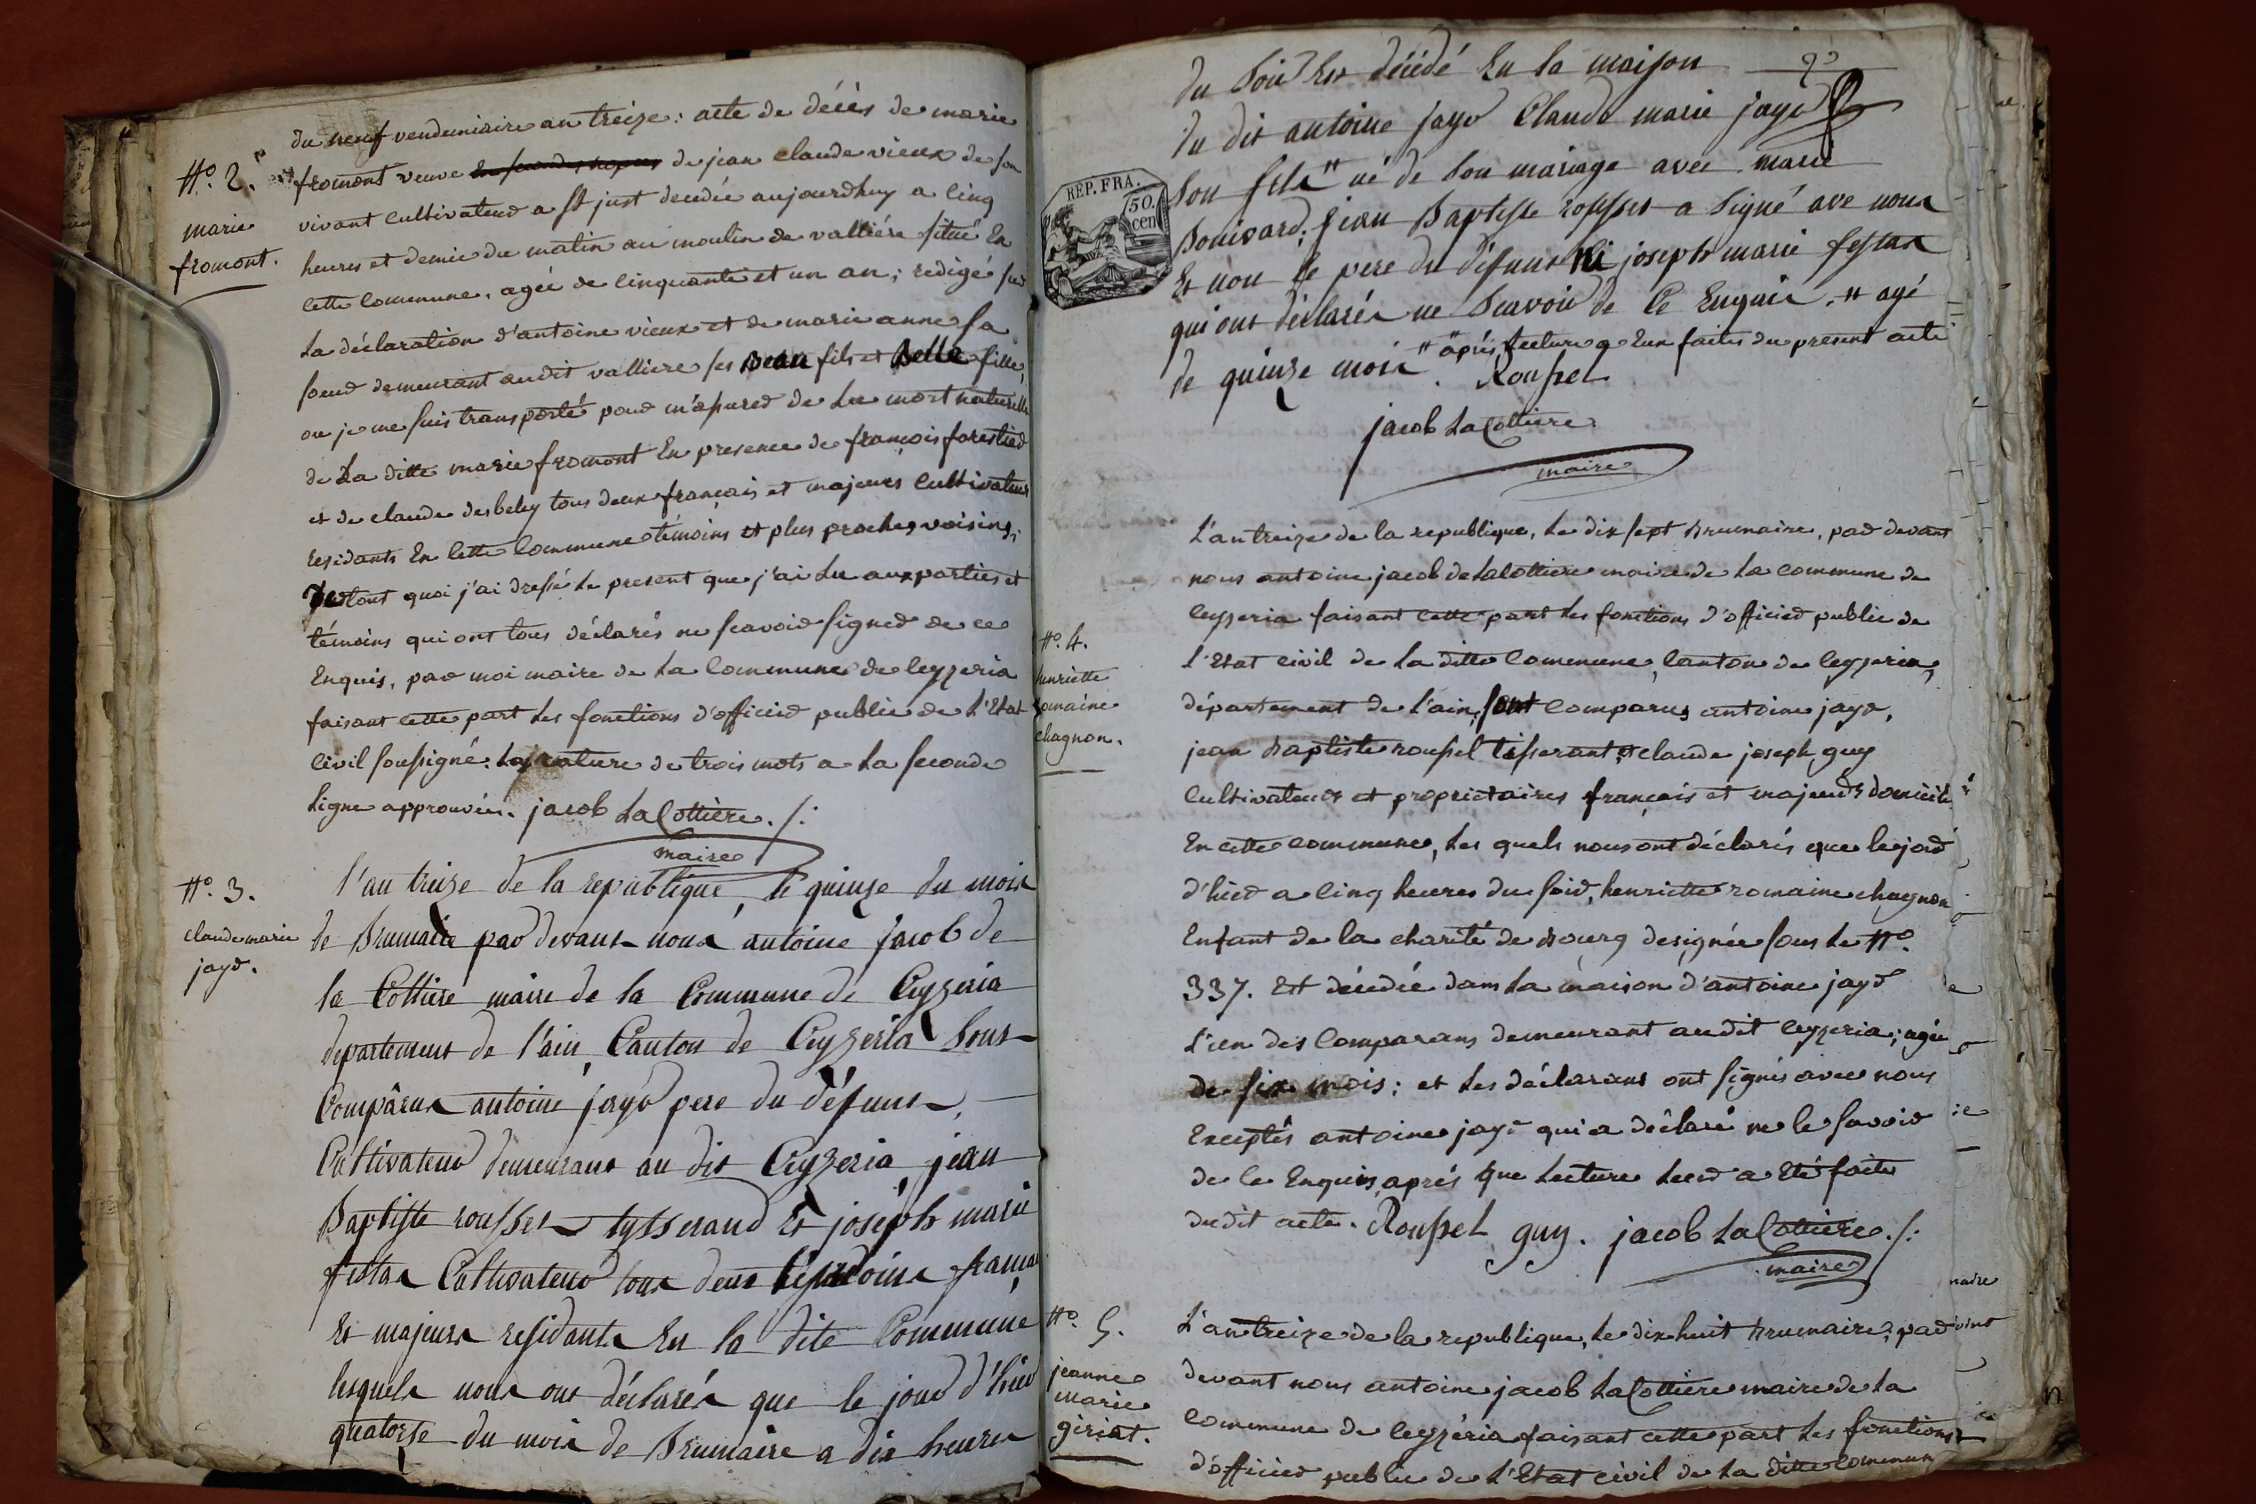 du neuf vendemiaire an treize: acte de décès de marie
N.o 2.
fromont veuve en secondes noces de jean claude vieux de son
vivant cultivateur a St just decedée aujourdhuy a cinq
marie
fromont.
heures et demie du matin au moulin de vallière situé En
cette commune, agée de cinquante et un an; redigé sur
La déclaration d'antoine vieux et de marie anne sa
soeur demeurant audit valliere ses Beau fils et Belle fille,
ou je me suis transporté pour m'assurer de La mort naturelle
de La ditte marie fromont En presence de françois forestier
et de claude desbeley tous deux français et majeurs Cultivateurs
residants En Cette Commune témoins et plus proches voisins,
De tout quoi j'ai dressé Le present que j'ai Lu aux parties et
témoins qui ont tous déclarés ne scavoir signer de ce
Enquis, par moi maire de La Commune de Ceyzeria
faisant cette part Les fonctions d'officier public de L'Etat
Civil soussigné. La rature de trois mots a La seconde
Ligne approuvée. jacob LaCottiere ./.
maire
N.o 3.
claude marie
jayr.
L'an treize de la republique, le quinze du mois
de Brumaire par devant nous antoine jacob de
la Cottiere maire de la Commune de Ceyzeria
departement de l'ain, Canton de Ceyzeria Sont
Comparus antoine jayr pere du défunt,
Cultivateur demeurant au dit Ceyzeria, jean
Baptiste roussel tysserand Et joseph marie
festas Cultivateur tous deux témoins français
Et majeurs residants En la dite Commune
lesquels nous ont déclarés que le jour d'hier
quatorze du mois de Brumaire a dix heures
du Soir Est décédé En la maison
du dit antoine jayr Claude marie jayr
REP. FRA.
50.
cen
Son fils " né de Son mariage avec marie
Bouivard; jean Baptiste roussel a Signé avec nous
Et non le pere du défunt Ni joseph marie festas
qui ont déclarés ne Scavoir de Ce Enquis. " agé
de quinze mois " " après Lecture a Eux faite du present acte
Roussel
jacob LaCottiere
maire
N.o 4.
henriette
romaine
chagnon.
L'an treize de la republique, Le dix sept Brumaire, par devant
nous antoine jacob de LaCottiere maire de La commune de
Ceyzeria faisant cette part Les fonctions d'officier public de
L'Etat civil de La ditte Commune, Canton de Ceyzeria,
département de L'ain, sont Comparus antoine jayr,
jean Baptiste roussel tisserant, et claude joseph guy
Cultivateurs et proprietaires français et majeurs domicilié
En cette commune, Les quels nous ont déclarés que le jour
d'hier a Cinq heures du soir, henriette romaine chagnon
Enfant de la charité de Bourg designée sous Le N.o
337. Est décédée dans La maison d'antoine jayr
L'un des Comparans demeurant audit Ceyzeria; agée
de six mois; et Les déclarans ont signés avec nous
Exceptés antoine jayr qui a déclaré ne le savoir
de Ce Enquis, aprés que Lecture Leur a Eté faite
dudit acte. Roussel guy. jacob LaCottiere ./.
maire
N.o 5.
jeanne
marie
giriat.
L'an treize de la republique, Le dix huit Brumaire, par
devant nous antoine jacob LaCottiere maire de La
Commune de Ceyzéria faisant cette part Les fonctions
d'officier public de L'Etat civil de La ditte commune